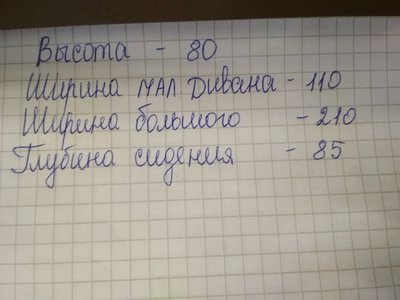 Высота - 80
Ширина мал. Дивана - 110
Ширина большого - 210
Глубина сидения - 85